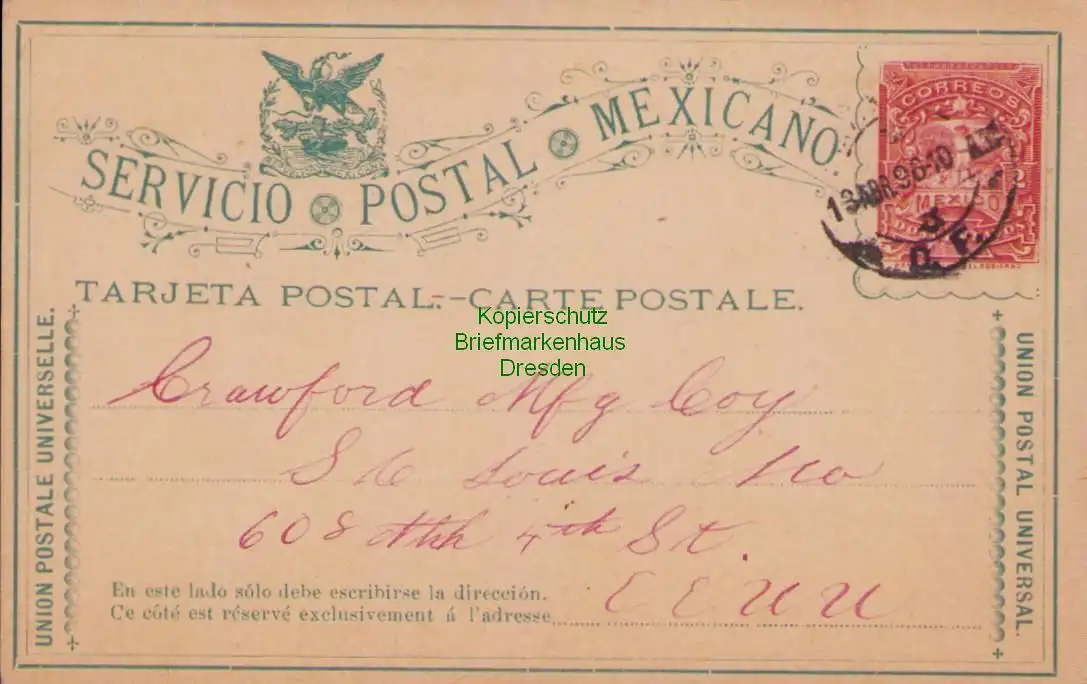 SERVICIO POSTAL MEXICANO
CORREOS
MEXICO
13 ABR. 96-10 A.M.
3
D. F.
TARJETA POSTAL.--CARTE POSTALE.
Kopierschutz
Briefmarkenhaus
Dresden
UNION POSTALE UNIVERSELLE.
UNION POSTAL UNIVERSAL.
Crawford Mfg Coy
St Louis Mo
608 Nth 4th St.
En este lado sólo debe escribirse la dirección.
Ce côté est réservé exclusivement á l'adresse
EEUU